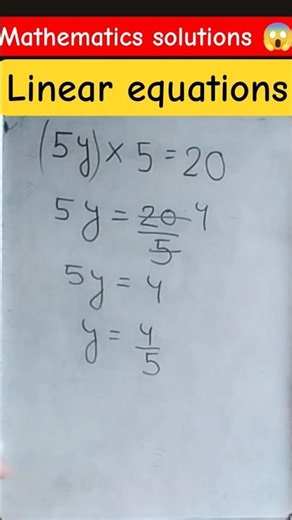 Mathematics solutions 😱
Linear equations
(5y) × 5 = 20
5y = 20/5 4
5y = 4
y = 4/5